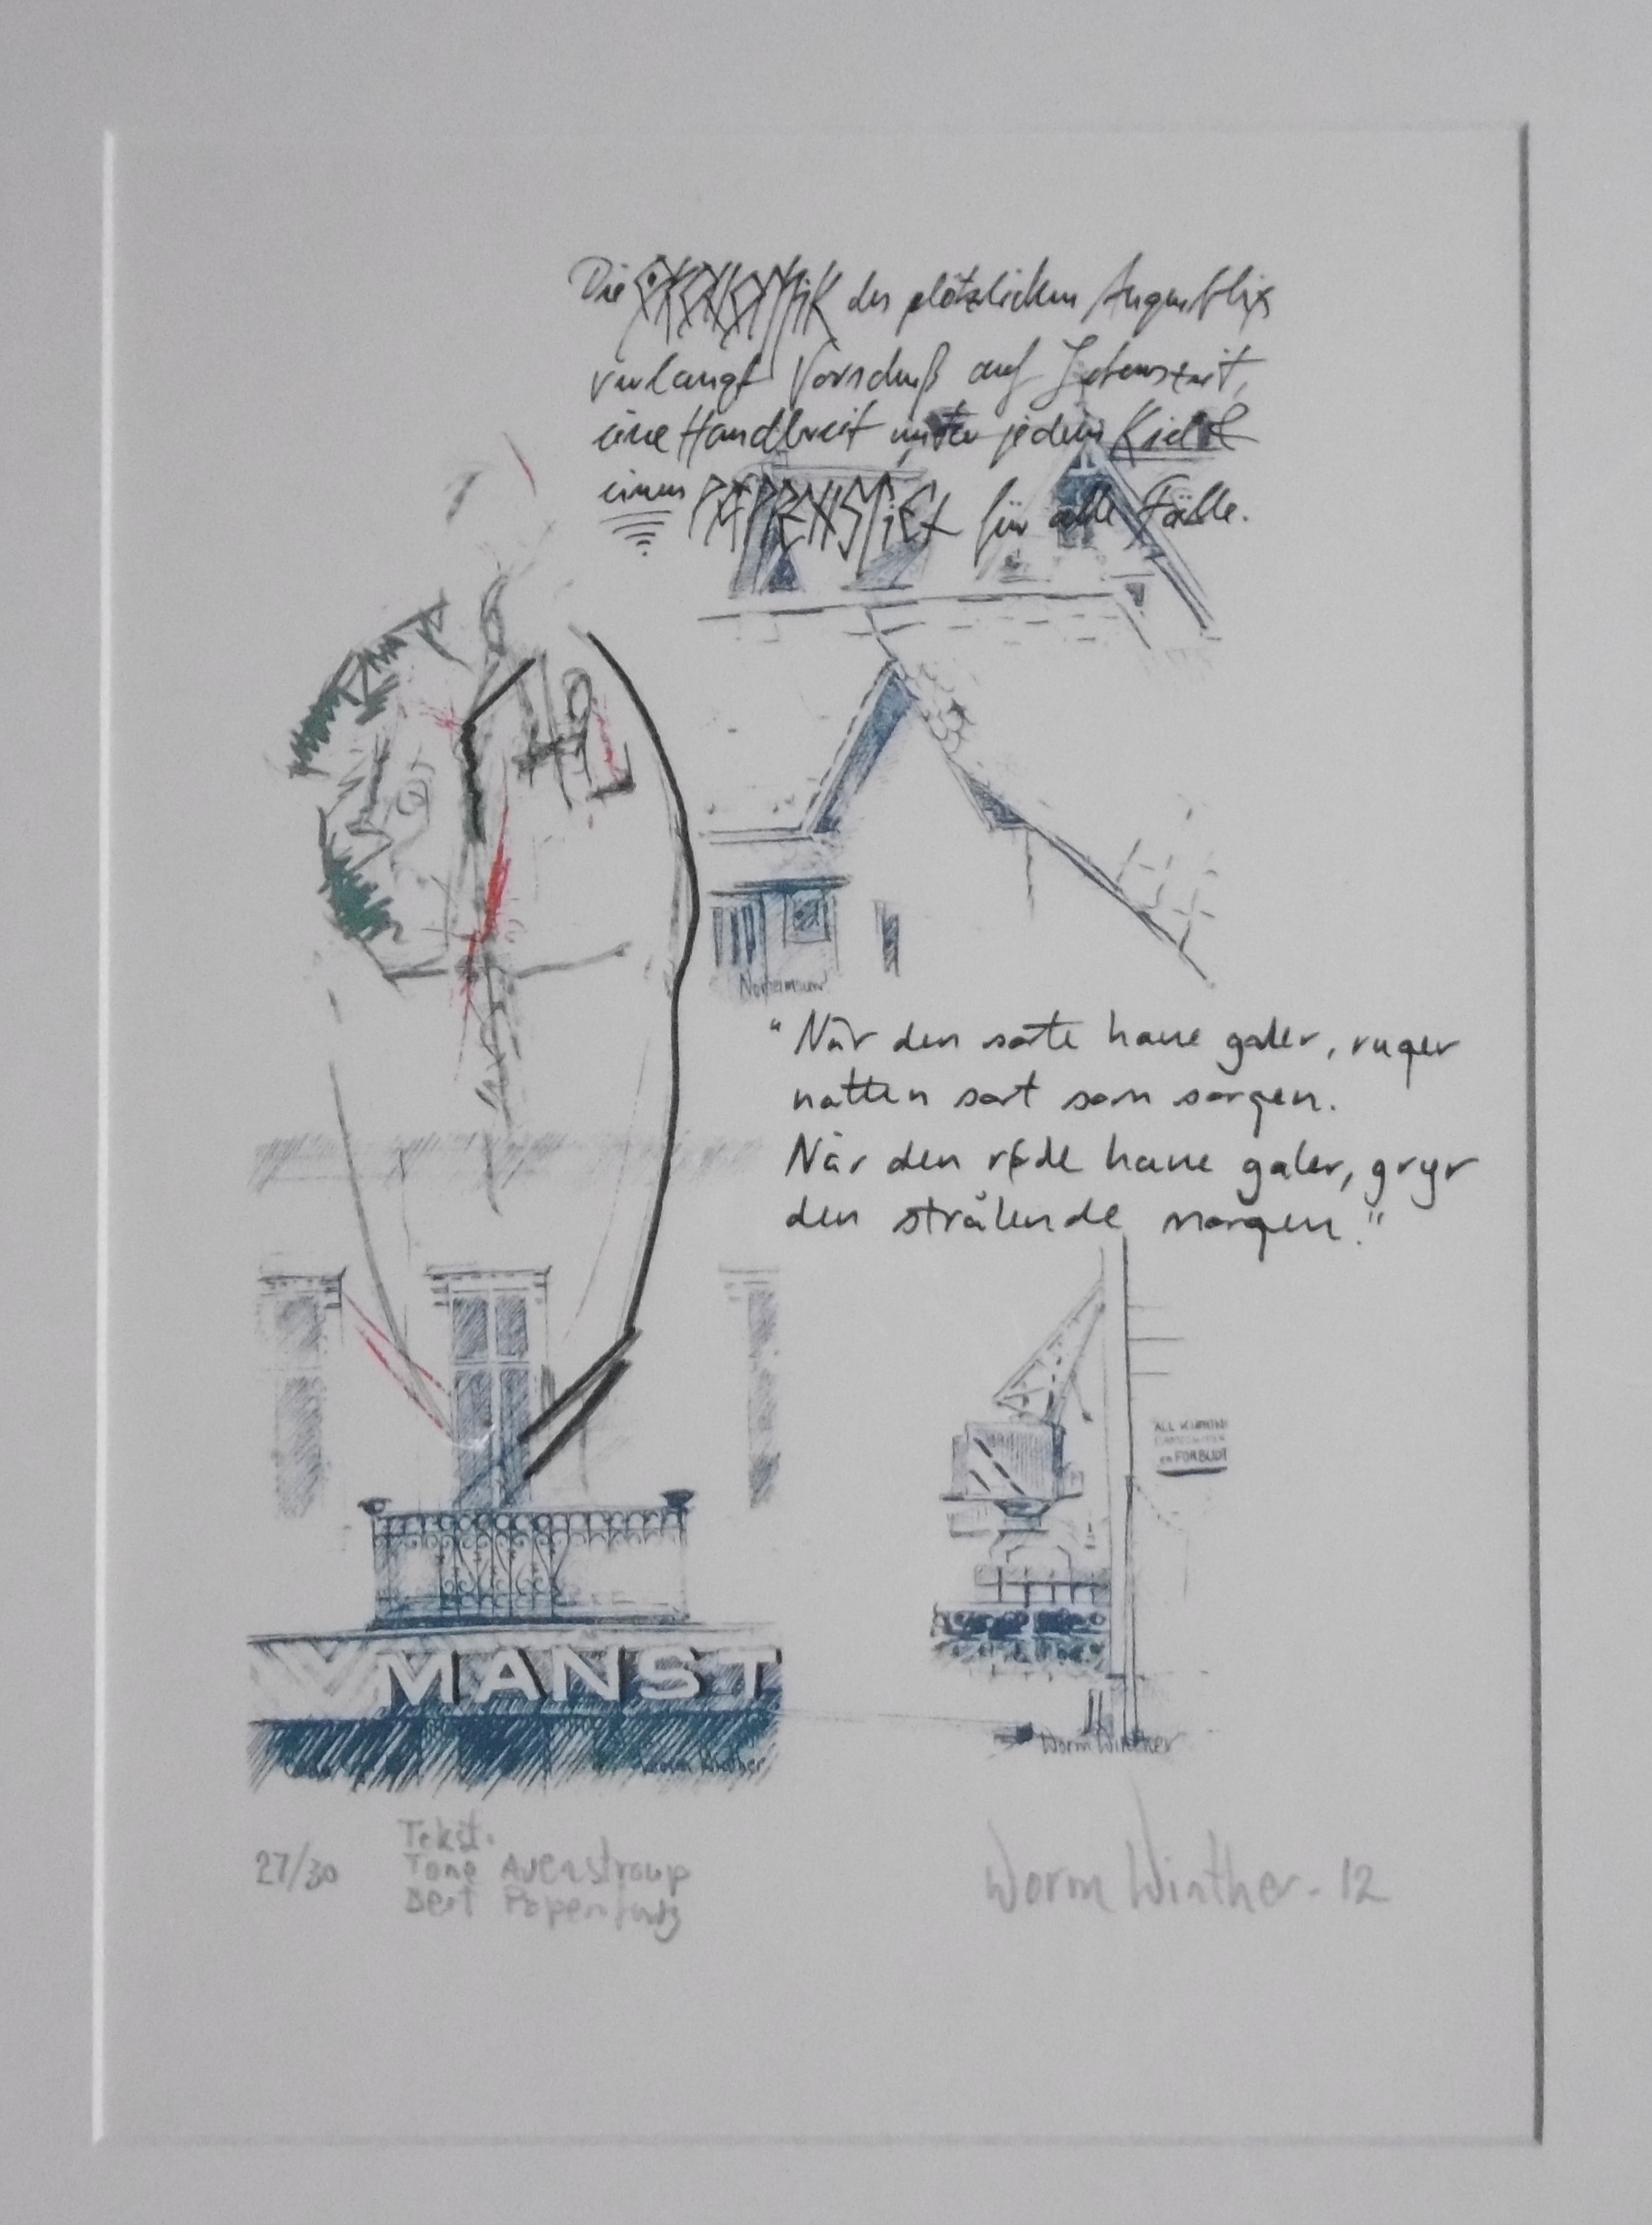 Die ÖKONOMIK des plötzlichen Augenblix
verlangt Vorschuß auf Lebenszeit,
eine Handbreit unter jedem Kiel &
einen PAPPENSTIEL für alle Fälle.
"Når den sorte hane galer, ruger
natten sort som sorgen.
Når den røde hane galer, gryr
den strålende morgen."
ALL
FORBUDT
MANST
Worm Winther
Worm Winther
27/30
Tekst:
Tone Avenstroup
Bert Papenfuß
Worm Winther - 12